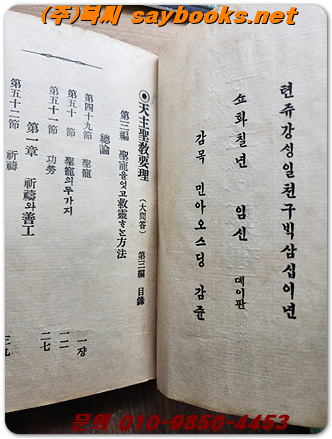 (주) saybooks.net
텬쥬강성일천구빅삼십이년
쇼화칠년 임신 뎨이판
감목 민아오스딩 감쥰
◉天主聖敎要理 (大問答) 第三編 目錄
第三編 聖寵을엇고救靈ᄒᆞᄂᆞᆫ方法
總論
第四十九節 聖寵 一쟝
第五十節 聖寵의두가지 一二
第五十一節 功勞 二七
第一章 祈禱와善工
第五十二節 祈禱 三九
문의 010-9850-4453